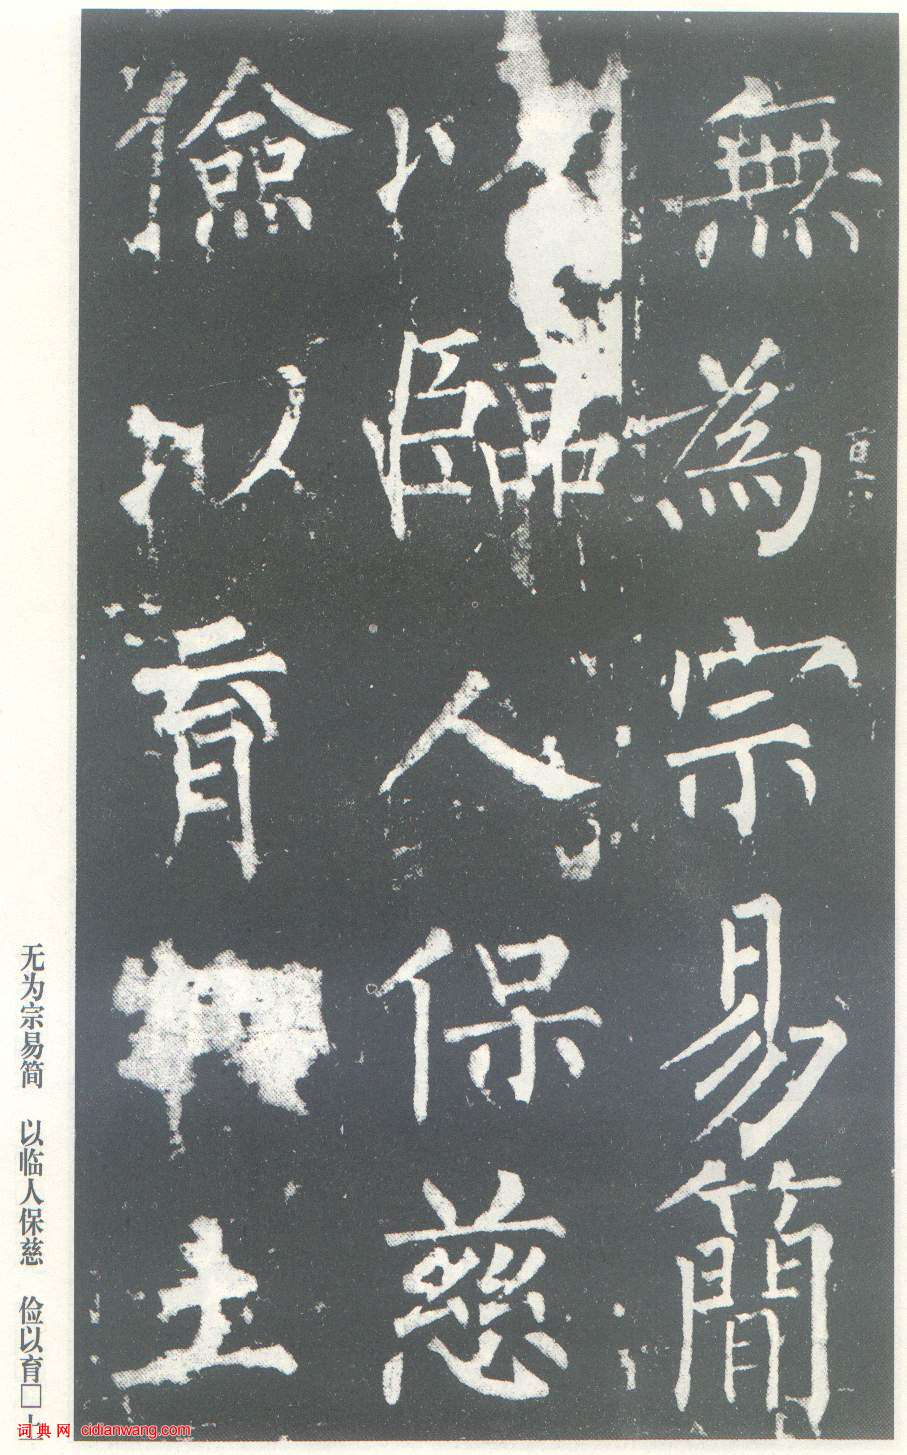 無為宗易簡
以臨人保慈
儉以育土
百六
无为宗易简 以临人保慈 俭以育□土
词典网 cidianwang.com